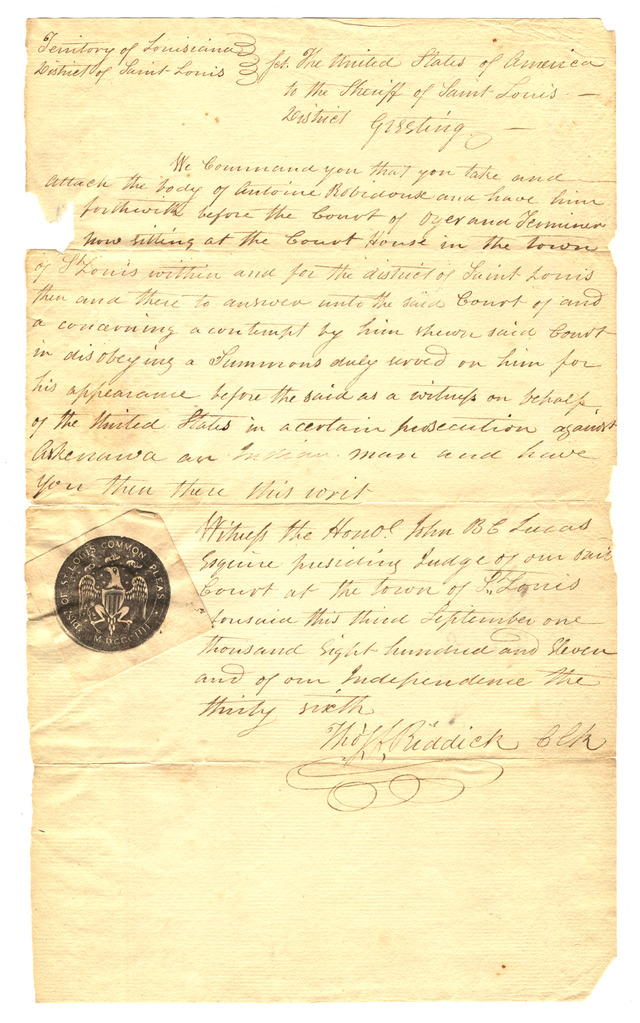 Territory of Louisiana
District of Saint Louis
Sct. The United States of America
to the Sheriff of Saint Louis
District Greeting
We Command you that you take and
attach the body of Antoine Robidoux and have him
forthwith before the Court of Oyer and Terminer
now sitting at the Court House in the town
of St Louis within and for the district of Saint Louis
then and there to answer unto the said Court of and
a concerning a contempt by him shewn said Court
in disobeying a Summons duly served on him for
his appearance before the said as a witness on behalf
of the United States in a certain prosecution against
an Indian man and have
you then there this writ
Witness the Honol. John B C Lucas
Esquire presiding Judge of our said
Court at the town of St. Louis
this third September one
thousand Eight hundred and Eleven
and of our Independence the
thirty sixth
Thos. F. Riddick Clk
OF ST LOUIS COMMON PLEAS